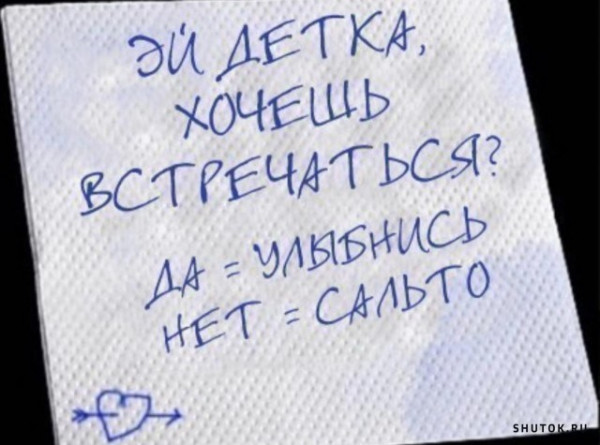 ЭЙ ДЕТКА,
ХОЧЕШЬ
ВСТРЕЧАТЬСЯ?
ДА = УЛЫБНИСЬ
НЕТ = САЛЬТО
SHUTOK.RU